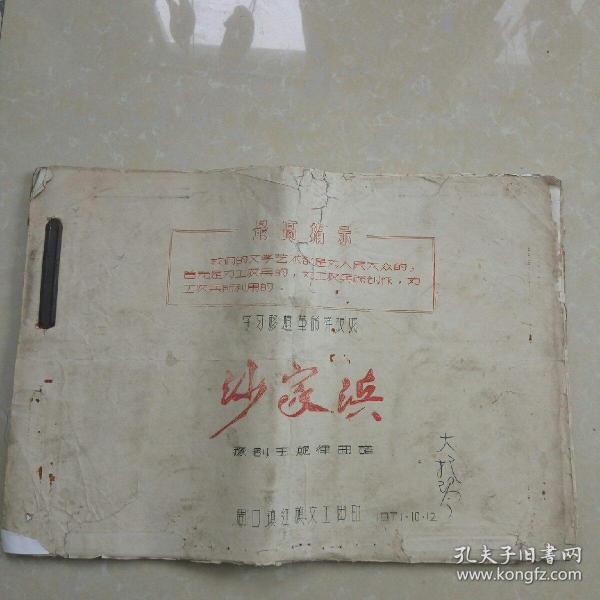 最高指示
我们的文学艺术都是为人民大众的，
首先是为工农兵的，为工农兵而创作，为
工农兵所利用的．
学习移植革命样板戏
沙家浜
豫剧主旋律曲谱
周口镇红旗文工团印 1971·10·12
大提琴
孔夫子旧书网
www.kongfz.com